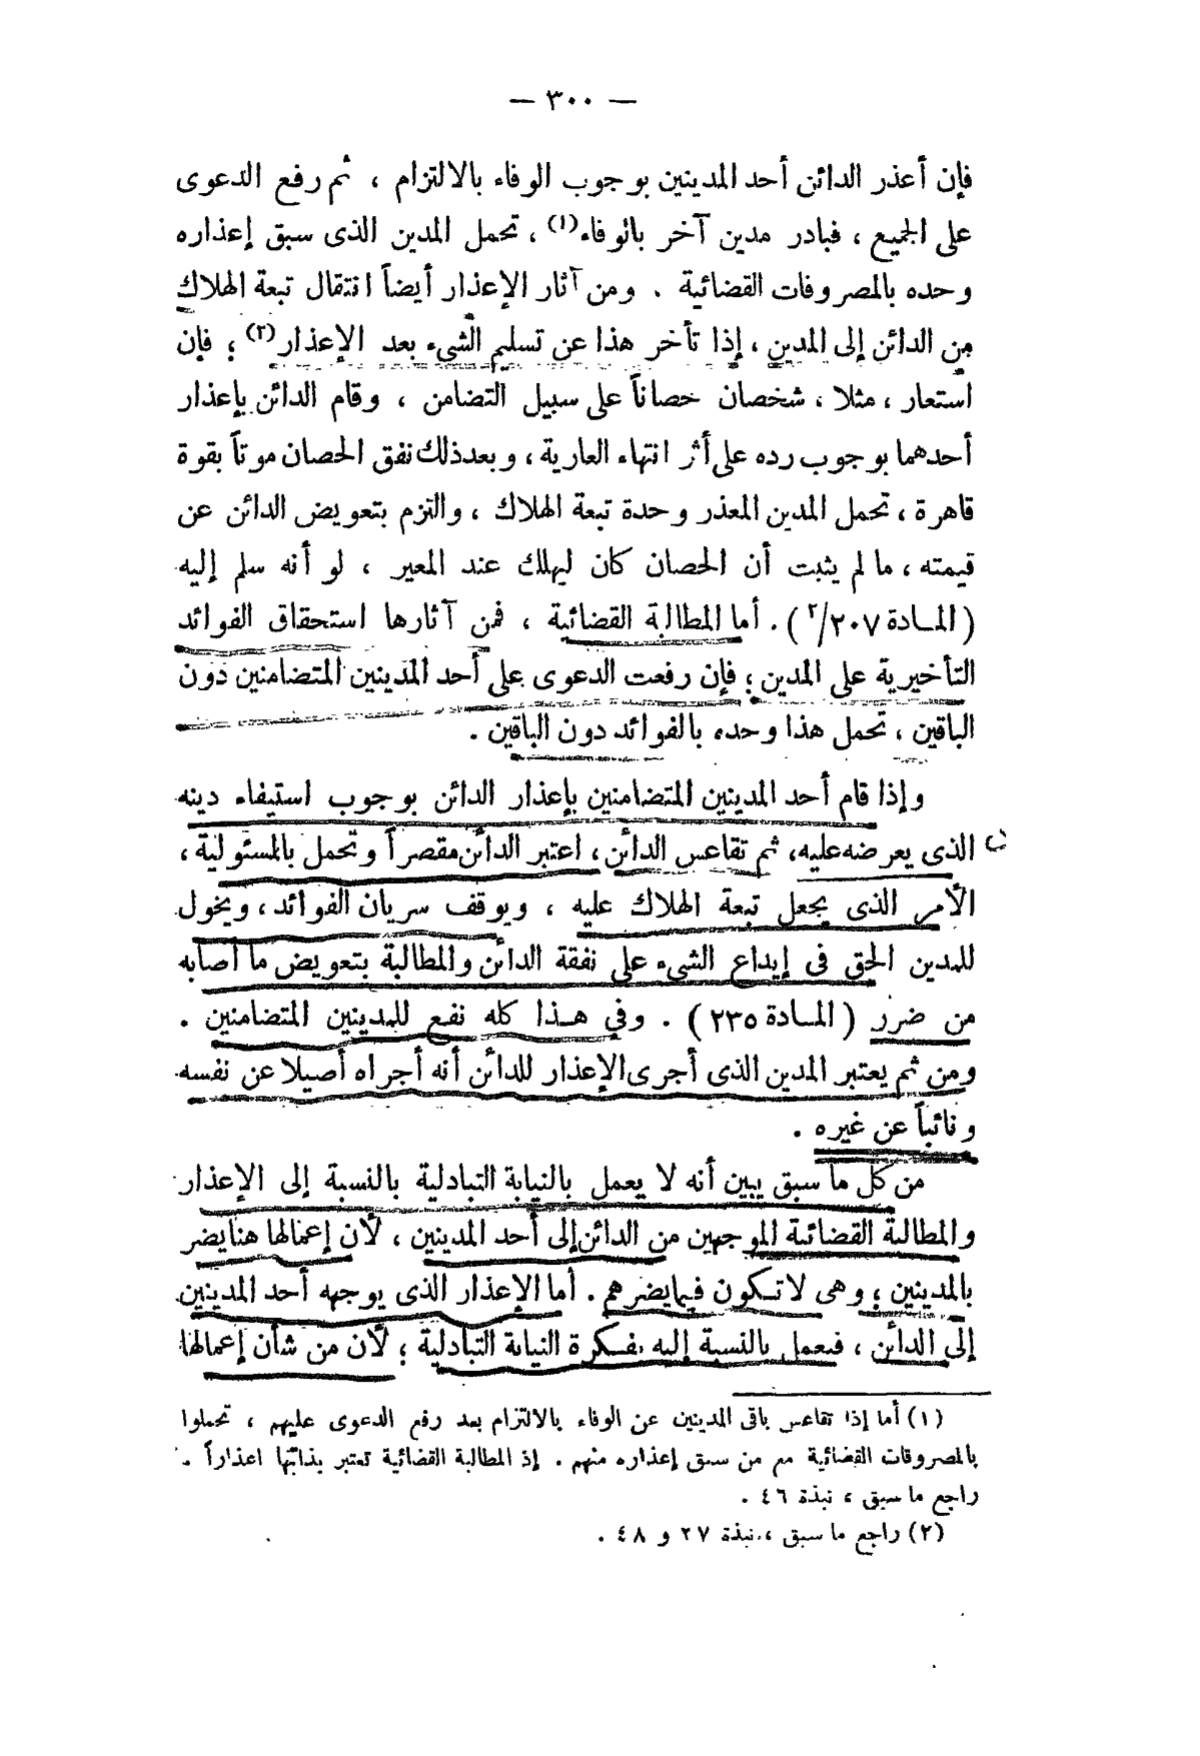 — ٣٠٠ —
فإن أعذر الدائن أحد المدينين بوجوب الوفاء بالالتزام ، ثم رفع الدعوى
على الجميع ، فبادر مدين آخر بالوفاء(١) ، تحمل المدين الذى سبق إعذاره
وحده بالمصروفات القضائية . ومن آثار الإعذار أيضاً انتقال تبعة الهلاك
من الدائن إلى المدين ، إذا تأخر هذا عن تسليم الشىء بعد الإعذار(٢) ؛ فإن
استعار ، مثلا ، شخصان حصاناً على سبيل التضامن ، وقام الدائن بإعذار
أحدهما بوجوب رده على أثر انتهاء العارية ، وبعد ذلك نفق الحصان موتاً بقوة
قاهرة ، تحمل المدين المعذر وحدة تبعة الهلاك ، والتزم بتعويض الدائن عن
قيمته ، ما لم يثبت أن الحصان كان ليهلك عند المعير ، لو أنه سلم إليه
(المادة ٢٠٧/٢) . أما المطالبة القضائية ، فمن آثارها استحقاق الفوائد
التأخيرية على المدين ؛ فإن رفعت الدعوى على أحد المدينين المتضامنين دون
الباقين ، تحمل هذا وحده بالفوائد دون الباقين .
وإذا قام أحد المدينين المتضامنين بإعذار الدائن بوجوب استيفاء دينه
الذى يعرضه عليه، ثم تقاعس الدائن ، اعتبر الدائن مقصراً وتحمل بالمسئولية ،
الأمر الذى يجعل تبعة الهلاك عليه ، ويوقف سريان الفوائد ، ويخول
للمدين الحق فى إيداع الشىء على نفقة الدائن والمطالبة بتعويض ما أصابه
من ضرر ( المادة ٢٣٥ ) . وفى هذا كله نفع للمدينين المتضامنين .
ومن ثم يعتبر المدين الذى أجرى الإعذار للدائن أنه أجراه أصيلا عن نفسه
ونائباً عن غيره .
من كل ما سبق يبين أنه لا يعمل بالنيابة التبادلية بالنسبة إلى الإعذار
والمطالبة القضائية الموجهين من الدائن إلى أحد المدينين ، لأن إعمالها هنا يضر
بالمدينين ؛ وهى لا تكون فيما يضرهم . أما الإعذار الذى يوجهه أحد المدينين
إلى الدائن ، فيعمل بالنسبة إليه بفكرة النيابة التبادلية ؛ لأن من شأن إعمالها
(١) أما إذا تقاعس باقى المدينين عن الوفاء بالالتزام بعد رفع الدعوى عليهم ، تحملوا
بالمصروفات القضائية مع من سبق إعذاره منهم . إذ المطالبة القضائية تعتبر بذاتها اعذاراً .
راجع ما سبق ، نبذة ٤٦ .
(٢) راجع ما سبق ، نبذة ٢٧ و ٤٨ .